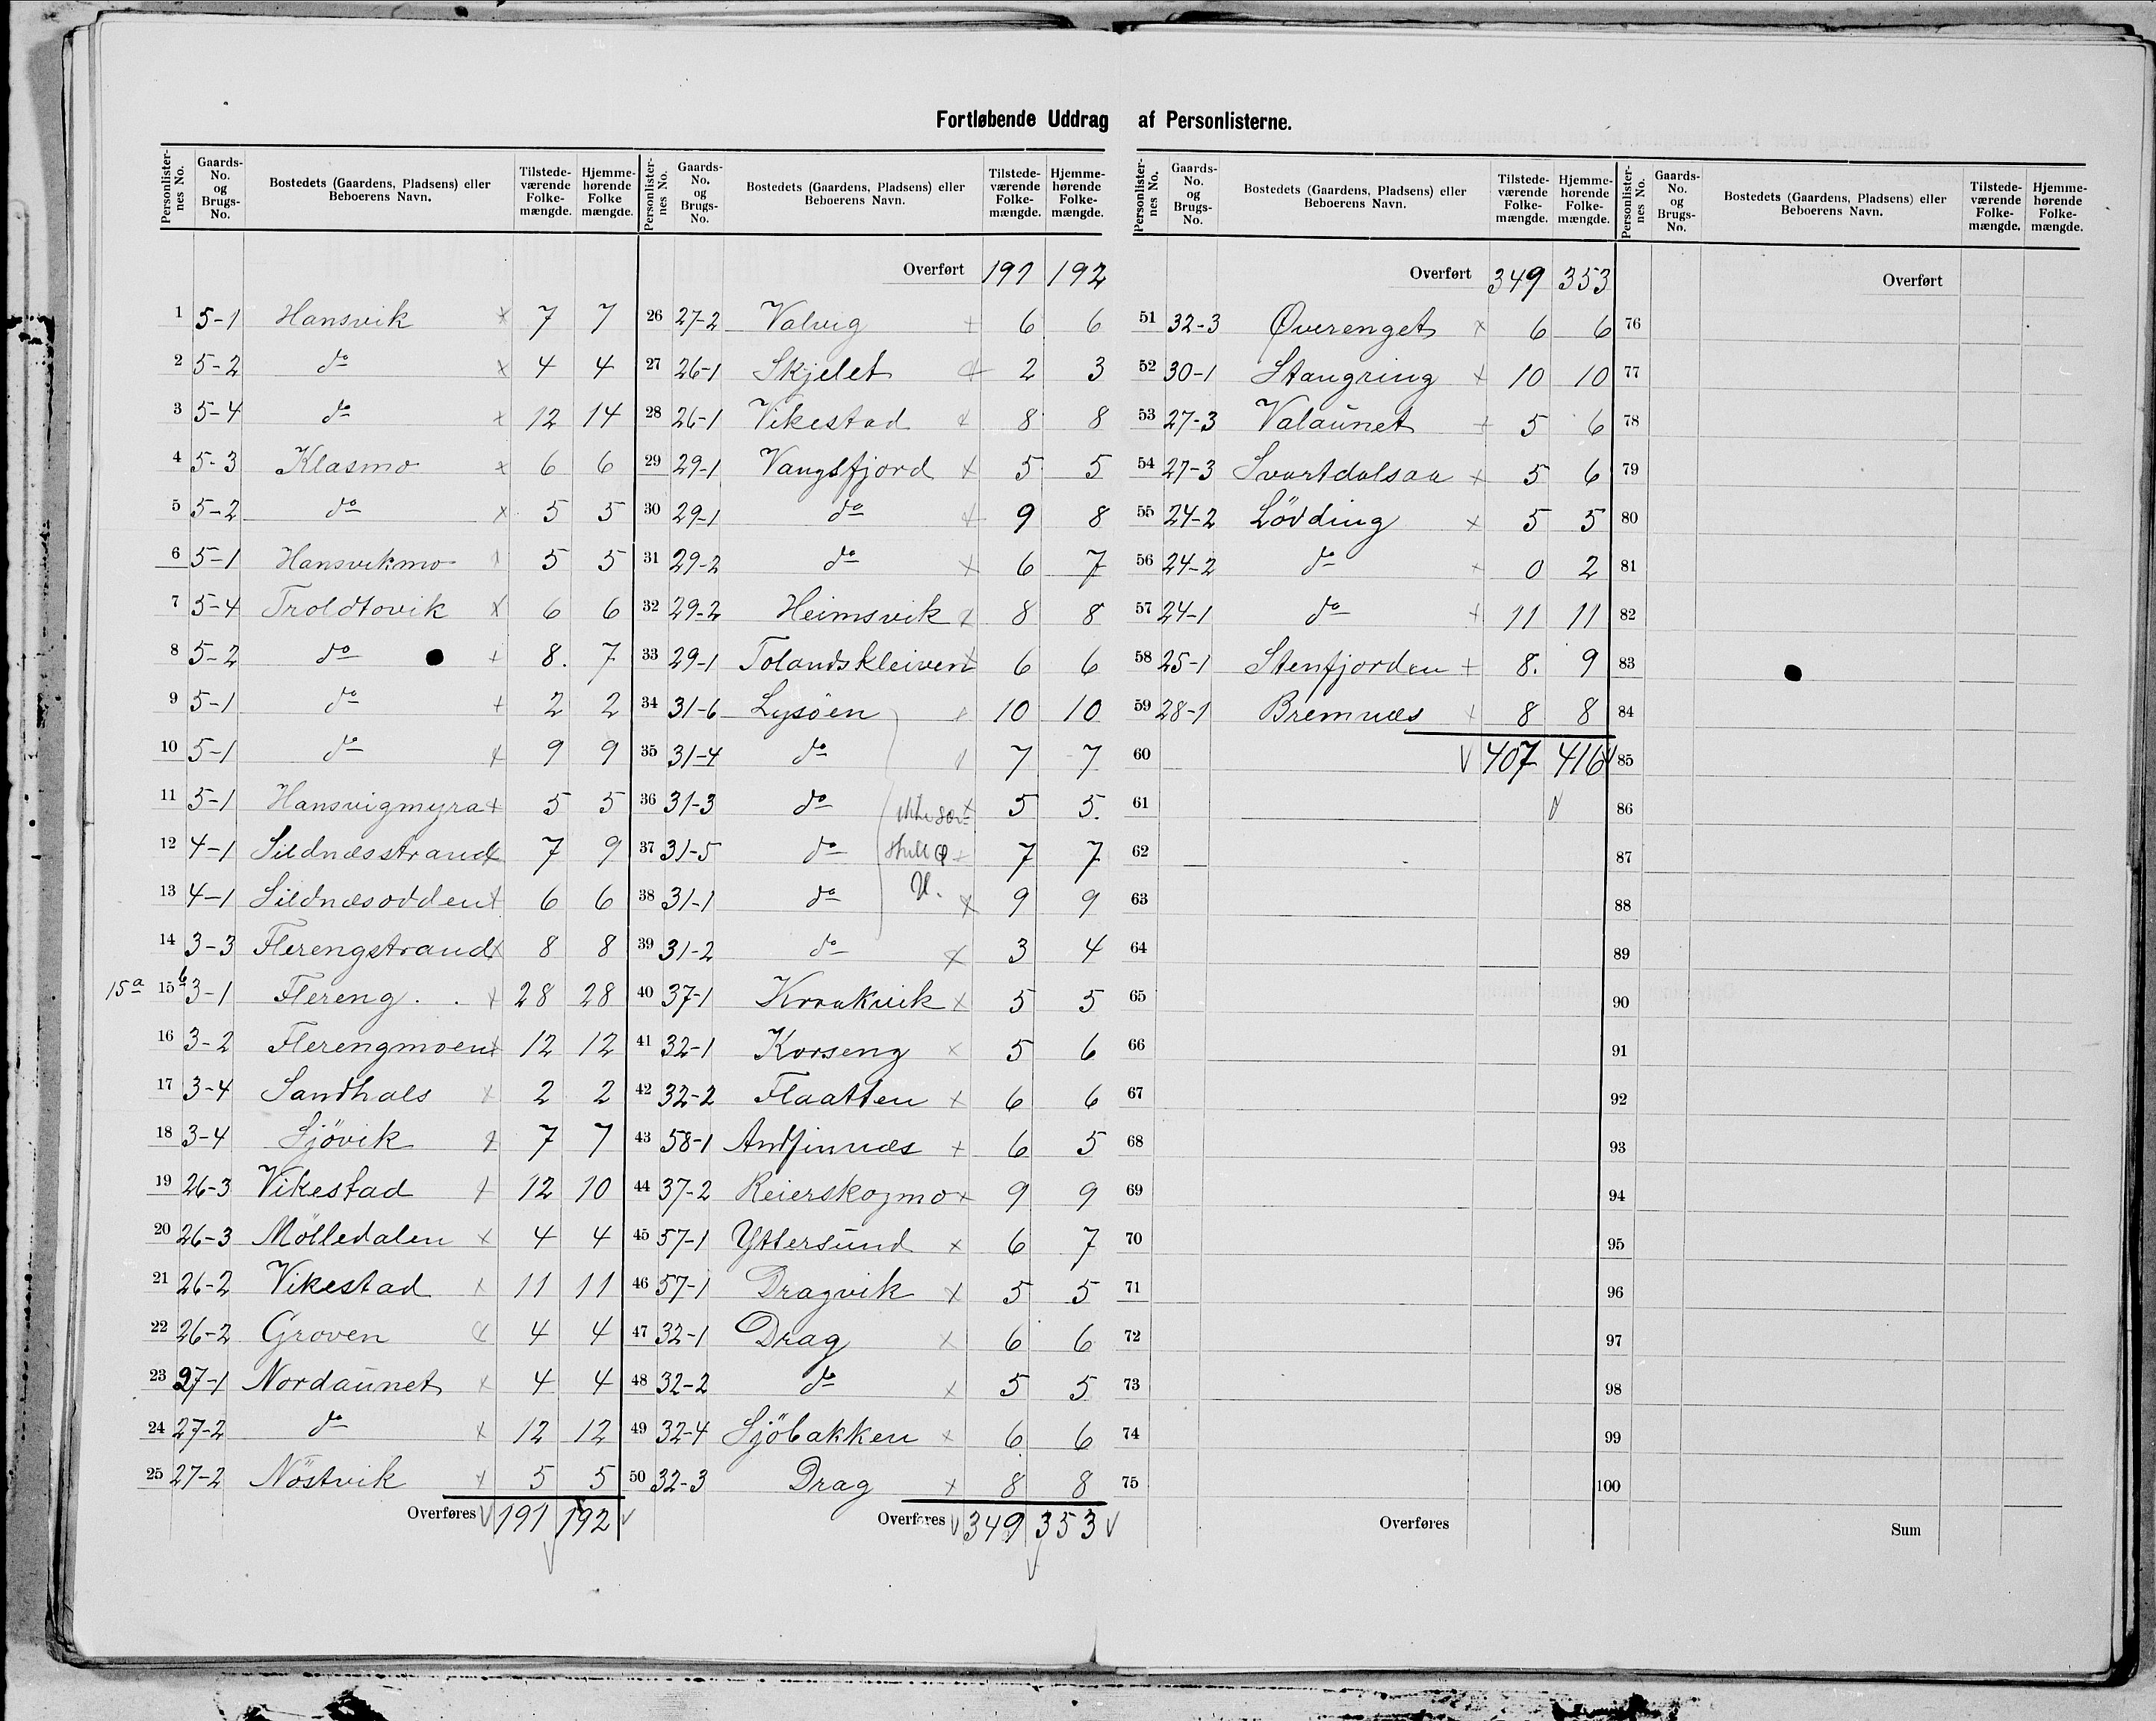 Fortløbende Uddrag af Personlisterne.
Personlister-nes No. Gaards-No. og Brugs-No. Bostedets (Gaardens, Pladsens) eller Beboerens Navn. Tilstede-værende Folke-mængde. Hjemme-hørende Folke mængde.
1 5-1 Hansvik x 7 7
2 5-2 do x 4 4
3 5-4 do x 12 14
4 5-3 Klasmo x 6 6
5 5-2 do x 5 5
6 5-1 Hansvikmo 5 5
7 5-4 Troldtovik x 6 6
8 5-2 do + 8. 7
9 5-1 do + 2 2
10 5-1 do x 9 9
11 5-1 Hansvigmyra + 5 5
12 4-1 Sildnæsstrand x 7 9
13 4-1 Sildnæsodden x 6 6
14 3-3 Flerengstrand x 8 8
15a 15b 3-1 Flereng . . x 28 28
16 3-2 Flerengmoen x 12 12
17 3-4 Sandhals x 2 2
18 3-4 Sjövik x 7 7
19 26-3 Vikestad x 12 10
20 26-3 Mölledalen x 4 4
21 26-2 Vikestad x 11 11
22 26-2 Groven x 4 4
23 27-1 Nordaunet x 4 4
24 27-2 do x 12 12
25 27-2 Nöstvik x 5 5
Overføres 191 192
Personlister-nes No. Gaards-No. og Brugs-No. Bostedets (Gaardens, Pladsens) eller Beboerens Navn. Tilstede-værende Folke-mængde. Hjemme-hørende Folke-mængde.
Overført 191 192
26 27-2 Valvig + 6 6
27 26-1 Skjelet x 2 3
28 26-1 Vikestad x 8 8
29 29-1 Vangsfjord x 5 5
30 29-1 do x 9 8
31 29-2 do x 6 7
32 29-2 Heimsvik x 8 8
33 29-1 Tolandskleiven x 6 6
34 31-6 Lysöen x 10 10
35 31-4 do 7 7
36 31-3 do x 5 5.
37 31-5 do + 7 7
38 31-1 do x 9 9
39 31-2 do x 3 4
40 37-1 Kraakvik x 5 5
41 32-1 Korseng x 5 6
42 32-2 Flaatten x 6 6
43 58-1 Andfinnæs + 6 5
44 37-2 Reierskogmo x 9 9
45 57-1 Yttersund x 6 7
46 57-1 Dragvik x 5 5
47 32-1 Drag x 6 6
48 32-2 do x 5 5
49 32-4 Sjöbakken x 6 6
50 32-3 Drag x 8 8
Overføres 349 353
Personlister-nes No. Gaards-No. og Brugs-No. Bostedets (Gaardens, Pladsens) eller Beboerens Navn. Tilstede-værende Folke-mængde. Hjemme-hørende Folke-mængde.
Overført 349 353
51 32-3 Øverenget x 6 6
52 30-1 Stangring + 10 10
53 27-3 Valaunet + 5 6
54 27-3 Svartdalsaa x 5 6
55 24-2 Lövding x 5 5
56 24-2 do + 0 2
57 24-1 do + 11 11
58 25-1 Stenfjorden + 8. 9
59 28-1 Bremnæs + 8 8
60 407 416
61
62
63
64
65
66
67
68
69
70
71
72
73
74
75
Overføres
Personlister-nes No. Gaards-No. og Brugs-No. Bostedets (Gaardens, Pladsens) eller Beboerens Navn. Tilstede-værende Folke-mængde. Hjemme-hørende Folke-mængde.
Overført
76
77
78
79
80
81
82
83
84
85
86
87
88
89
90
91
92
93
94
95
96
97
98
99
100
Sum